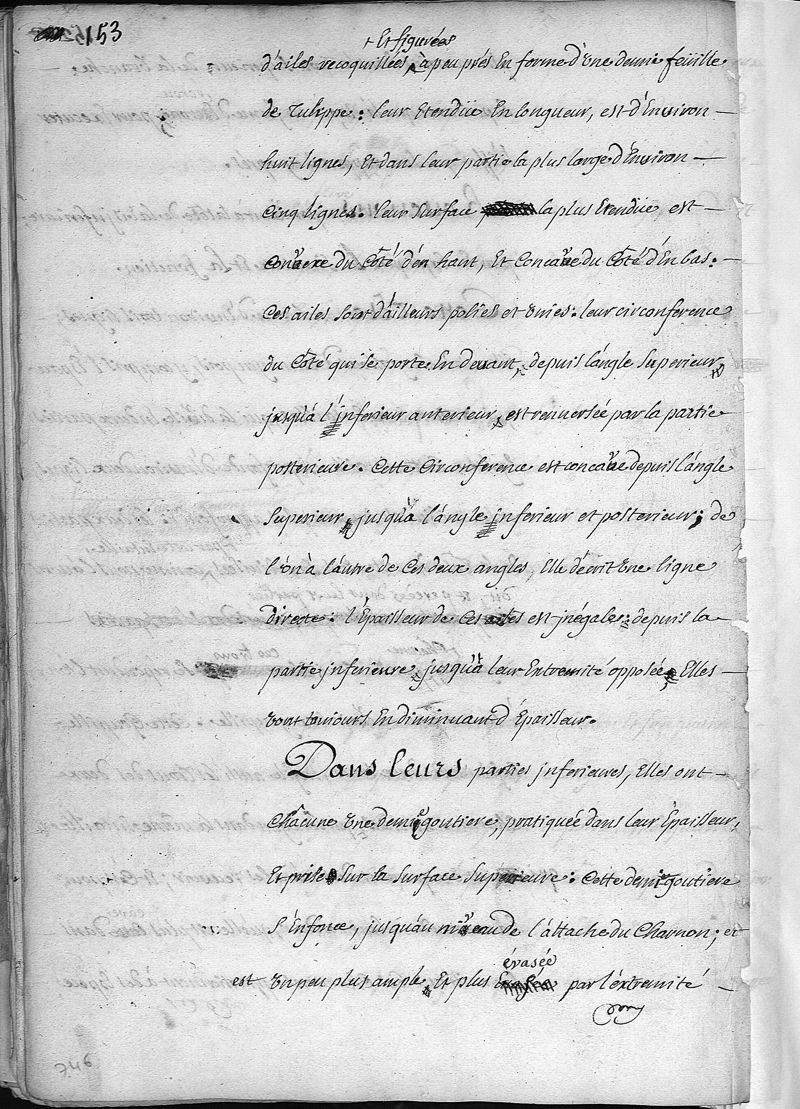 153
+ Et figurées
d'ailes recoquillées, à peu prés En forme d'Une demie feüille
de Tulyppe: leur Etendüe En longueur, est d'Environ —
huit lignes, Et dans leur partie la plus large d'Environ —
Cinq lignes. leur Surface la plus Etendüe est —
convexe du Côté d'en haut, Et Concave du Côté d'En bas:
Ces ailes sont d'àilleurs polies et Vnies: leur circonference
du Côté qui se porte En devant, depuis l'àngle Superieur,
jusqu'à l'jnferieur anterieur, est renversée par la partie
posterieure. Cette Circonference est concave depuis l'àngle
Superieur, jusqu'à l'àngle jnferieur et posterieur; de
l'Vn à l'àutre de Ces deux angles, Elle décrit Vne ligne
directe: l'Épaisseur de Ces ailes est jnégale: depuis la
partie jnferieure, jusqu'à leur Extremité opposée, Elles —
vont toujours En diminuant d'Épaisseur.
Dans leurs parties jnferieures, Elles ont —
Châcune Vne demie goutiere, pratiquée dans leur Épaisseur,
Et prise Sur la Surface Superieure: Cette demie goutiere
s'Enfonce, jusqu'àu niveau de l'àttache du Charnon; et
évasée
est Vn peu plus ample, Et plus par l'éxtremité —
346